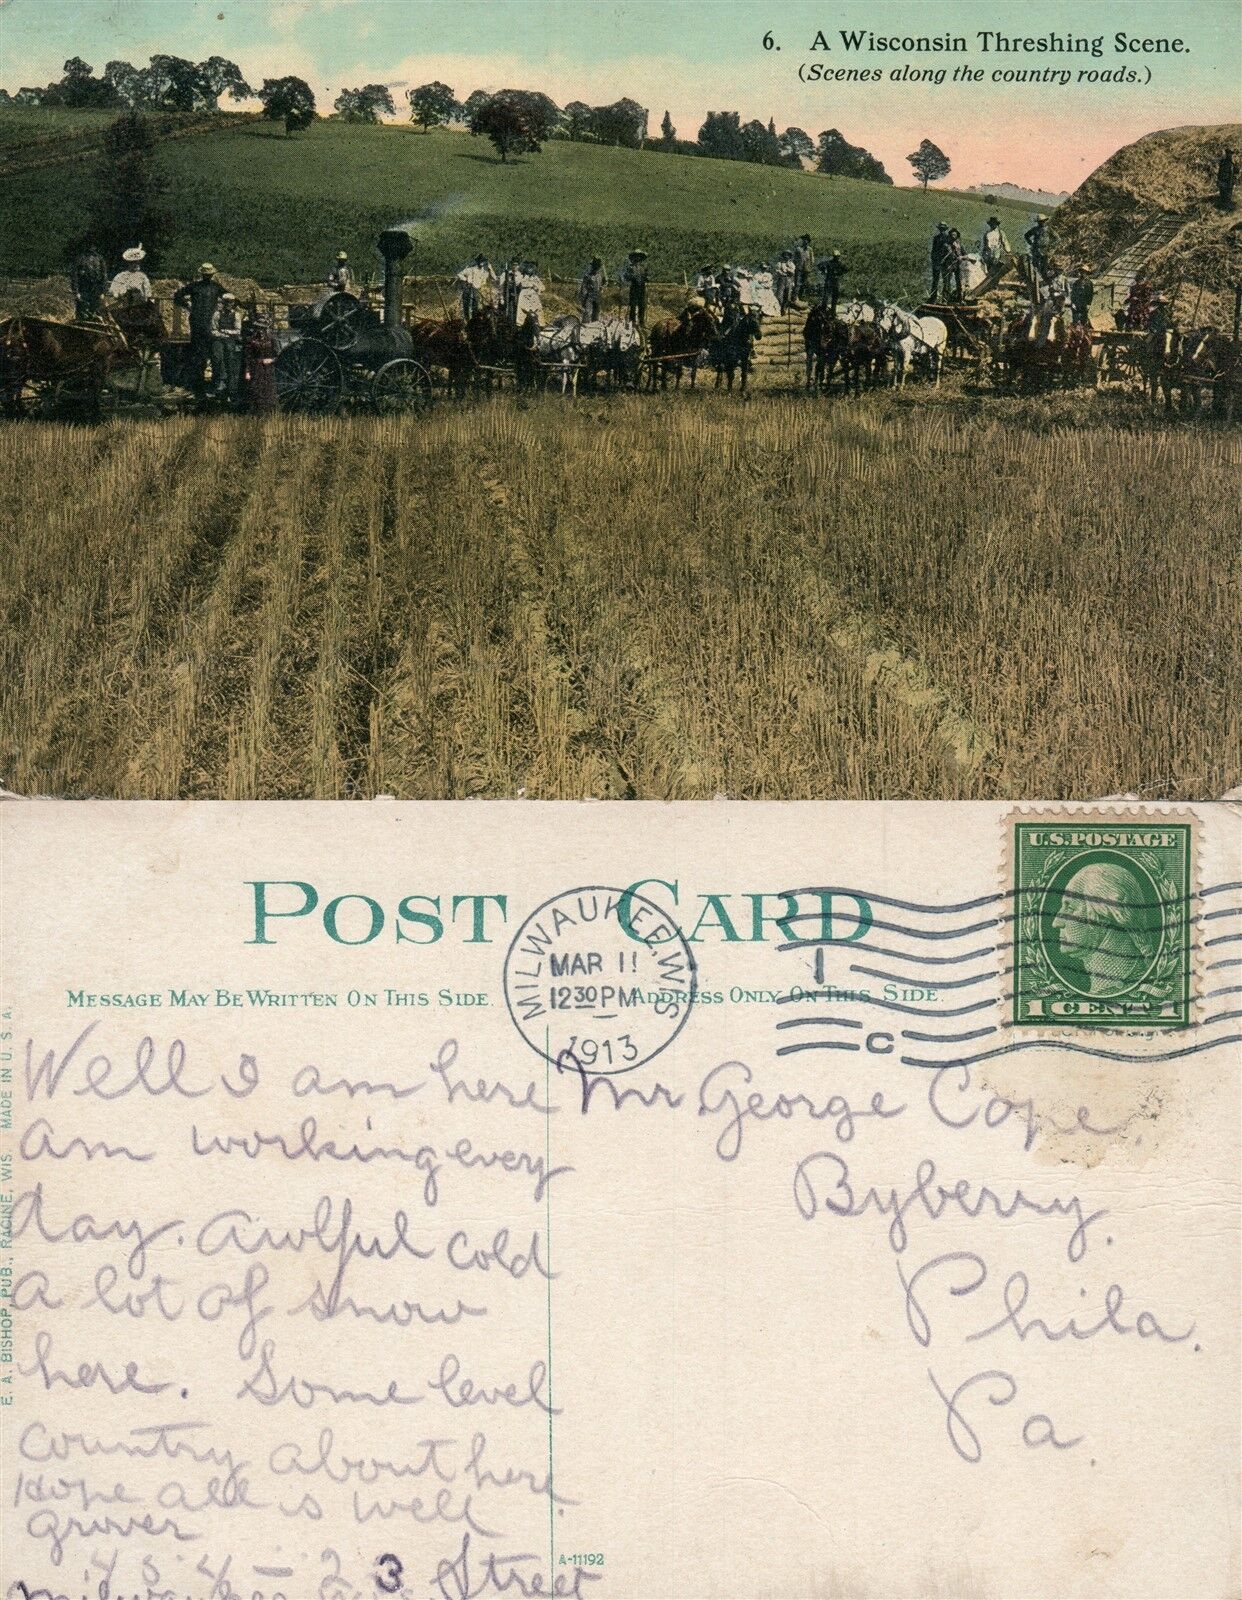 6. A Wisconsin Threshing Scene.
(Scenes along the country roads.)
POST CARD
U.S. POSTAGE
1 CENT 1
MILWAUKEE, WIS
MAR 11
12 30 PM
1913
1
C
MESSAGE MAY BE WRITTEN ON THIS SIDE.
ADDRESS ONLY ON THIS SIDE.
E. A. BISHOP, PUB., RACINE, WIS. MADE IN U. S. A.
Well I am here
am working every
day. Awlful cold
a lot of snow
here. Some level
country about here.
Hope all is well
Grover
434-23 Street
Milwaukee Wis.
Mr George Cope.
Byberry.
Phila.
Pa
A-11192